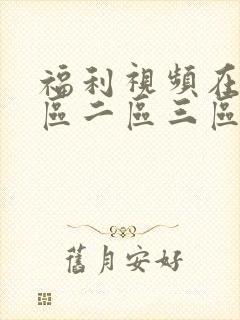 福利視頻在
區二區三區
舊月安好